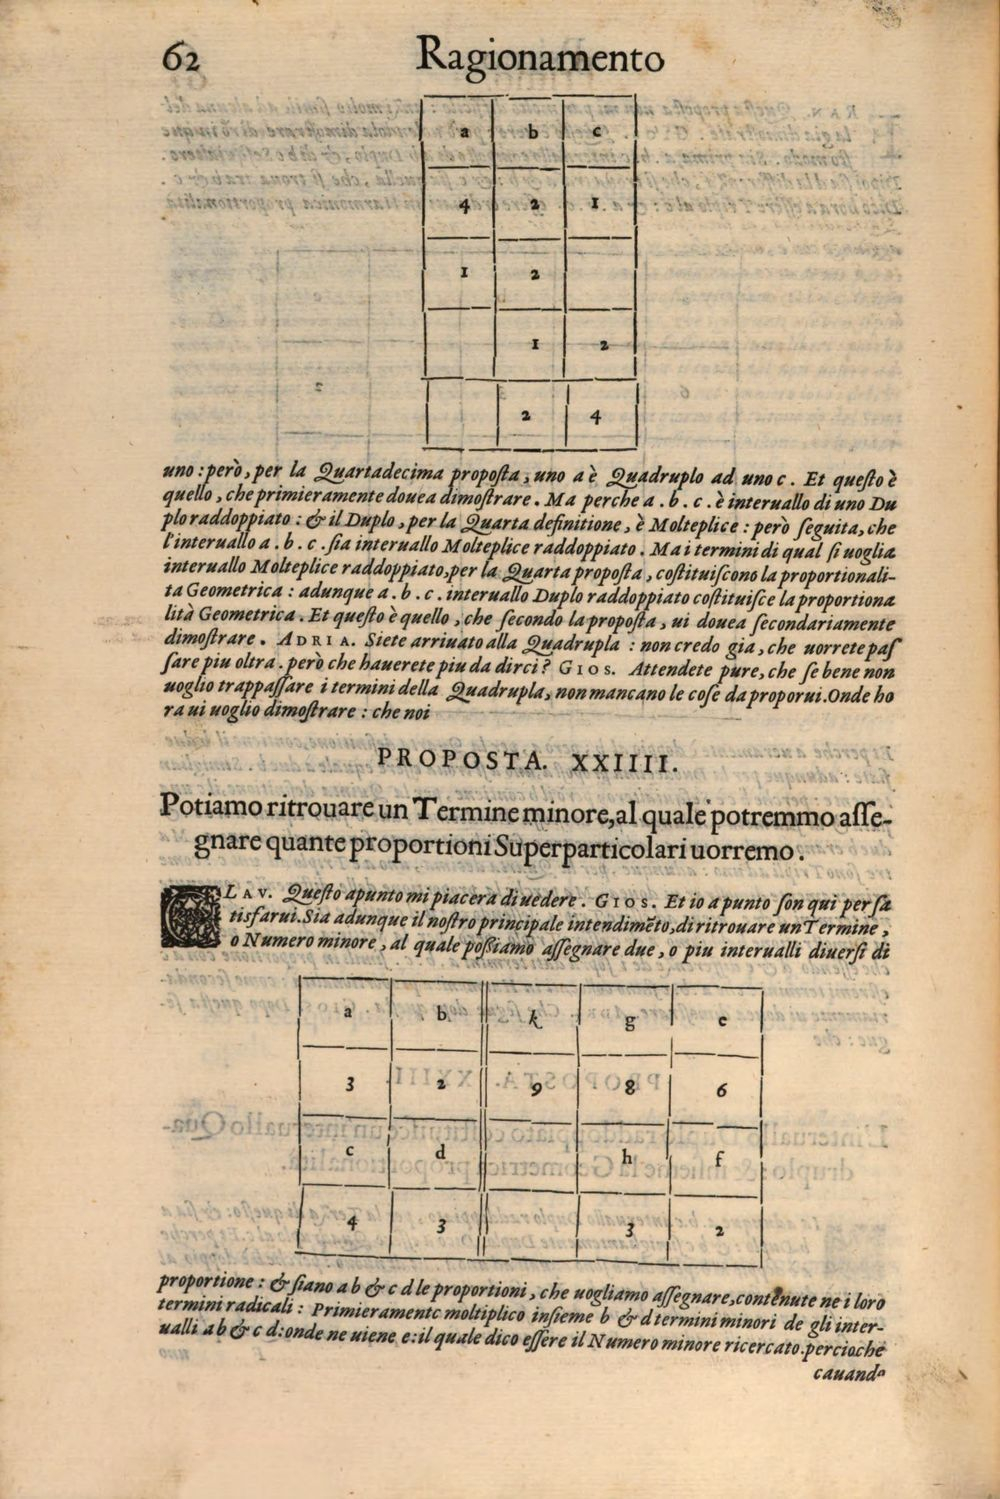 62 Ragionamento
a b c
4 2 1
1 2
1 2
2 4
uno: però, per la Quartadecima proposta, uno a è Quadruplo ad uno c. Et questo è
quello, che primieramente douea dimostrare. Ma perche a. b. c. è interuallo di uno Du
plo raddoppiato: & il Duplo, per la Quarta definitione, è Molteplice: però seguita, che
l'interuallo a. b. c. sia interuallo Molteplice raddoppiato. Ma i termini di qual si uoglia
interuallo Molteplice raddoppiato, per la Quarta proposta, costituiscono la proportionali-
ta Geometrica: adunque a. b. c. interuallo Duplo raddoppiato costituisce la proportiona
lità Geometrica. Et questo è quello, che secondo la proposta, ui douea secondariamente
dimostrare. ADRIA. Siete arriuato alla Quadrupla: non credo gia, che uorrete pas
sare piu oltra. però che hauerete piu da dirci? GIOS. Attendete pure, che se bene non
uoglio trappassare i termini della Quadrupla, non mancano le cose da proporui. Onde ho
ra ui uoglio dimostrare: che noi
PROPOSTA. XXIIII.
Potiamo ritrouare un Termine minore, al quale potremmo asse-
gnare quante proportioni Superparticolari uorremo.
CLAV. Questo apunto mi piacerà di uedere. GIOS. Et io apunto son qui per sa
tisfarui. Sia adunque il nostro principale intendimẽto, di ritrouare un Termine,
o Numero minore, al quale possiamo assegnare due, o piu interualli diuersi di
a b k g e
3 2 9 8 6
c d h f
4 3 3 2
proportione: & siano a b & c d le proportioni, che uogliamo assegnare, contenute ne i loro
termini radicali: Primieramente moltiplico insieme b & d termini minori de gli inter-
ualli a b & c d: onde ne uiene e: il quale dico essere il Numero minore ricercato. percioche
cauando